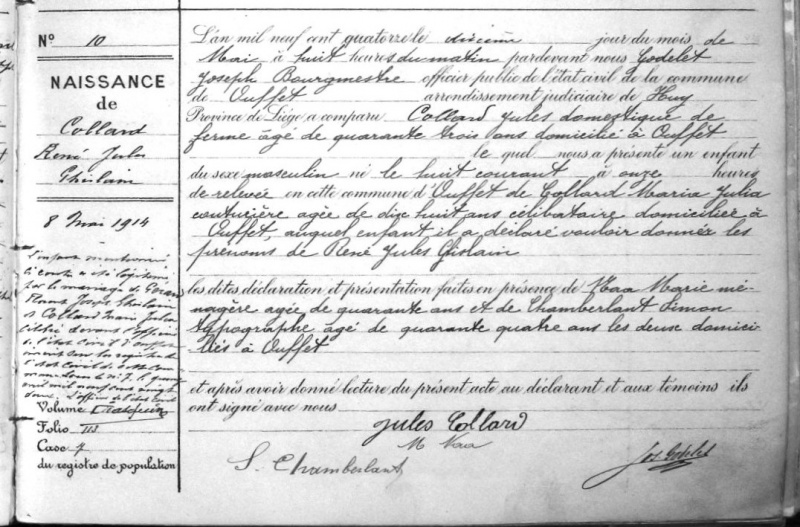 N° 10
NAISSANCE
de
Collard
René Jules
Ghislain
8 Mai 1914
L'enfant mentionné
ci contre a été légitimé
par le mariage de
Joseph Ghislain
et Collard Maria Julia
célébré devant l'officier
de l'état civil
l'état civil de
mil neuf cent vingt
L'officier de l'état civil
Volume
Folio III
Case 7
du registre de population
L'an mil neuf cent quatorze le dixième jour du mois de
Mai à huit heures du matin pardevant nous Godelet
Joseph Bourgmestre officier public de l'état civil de la commune
de Ouffet arrondissement judiciaire de Huy
Province de Liége a comparu Collard Jules domestique de
ferme âgé de quarante trois ans domicilié à Ouffet
le quel nous a présenté un enfant
du sexe masculin né le huit courant à onze heures
de relevée en cette commune d'Ouffet de Collard Maria Julia
couturière agée de dix huit ans célibataire domiciliée à
Ouffet, auquel enfant il a déclaré vouloir donner les
prénoms de René Jules Ghislain
les dites déclaration et présentation faites en présence de Naa Marie mé-
nagère agée de quarante ans et de Chamberlant Simon
typographe âgé de quarante quatre ans les deux domici-
liés à Ouffet
et après avoir donné lecture du présent acte au déclarant et aux témoins ils
ont signé avec nous
Jules Collard
M Naa
S. Chamberlant
Jos Godelet